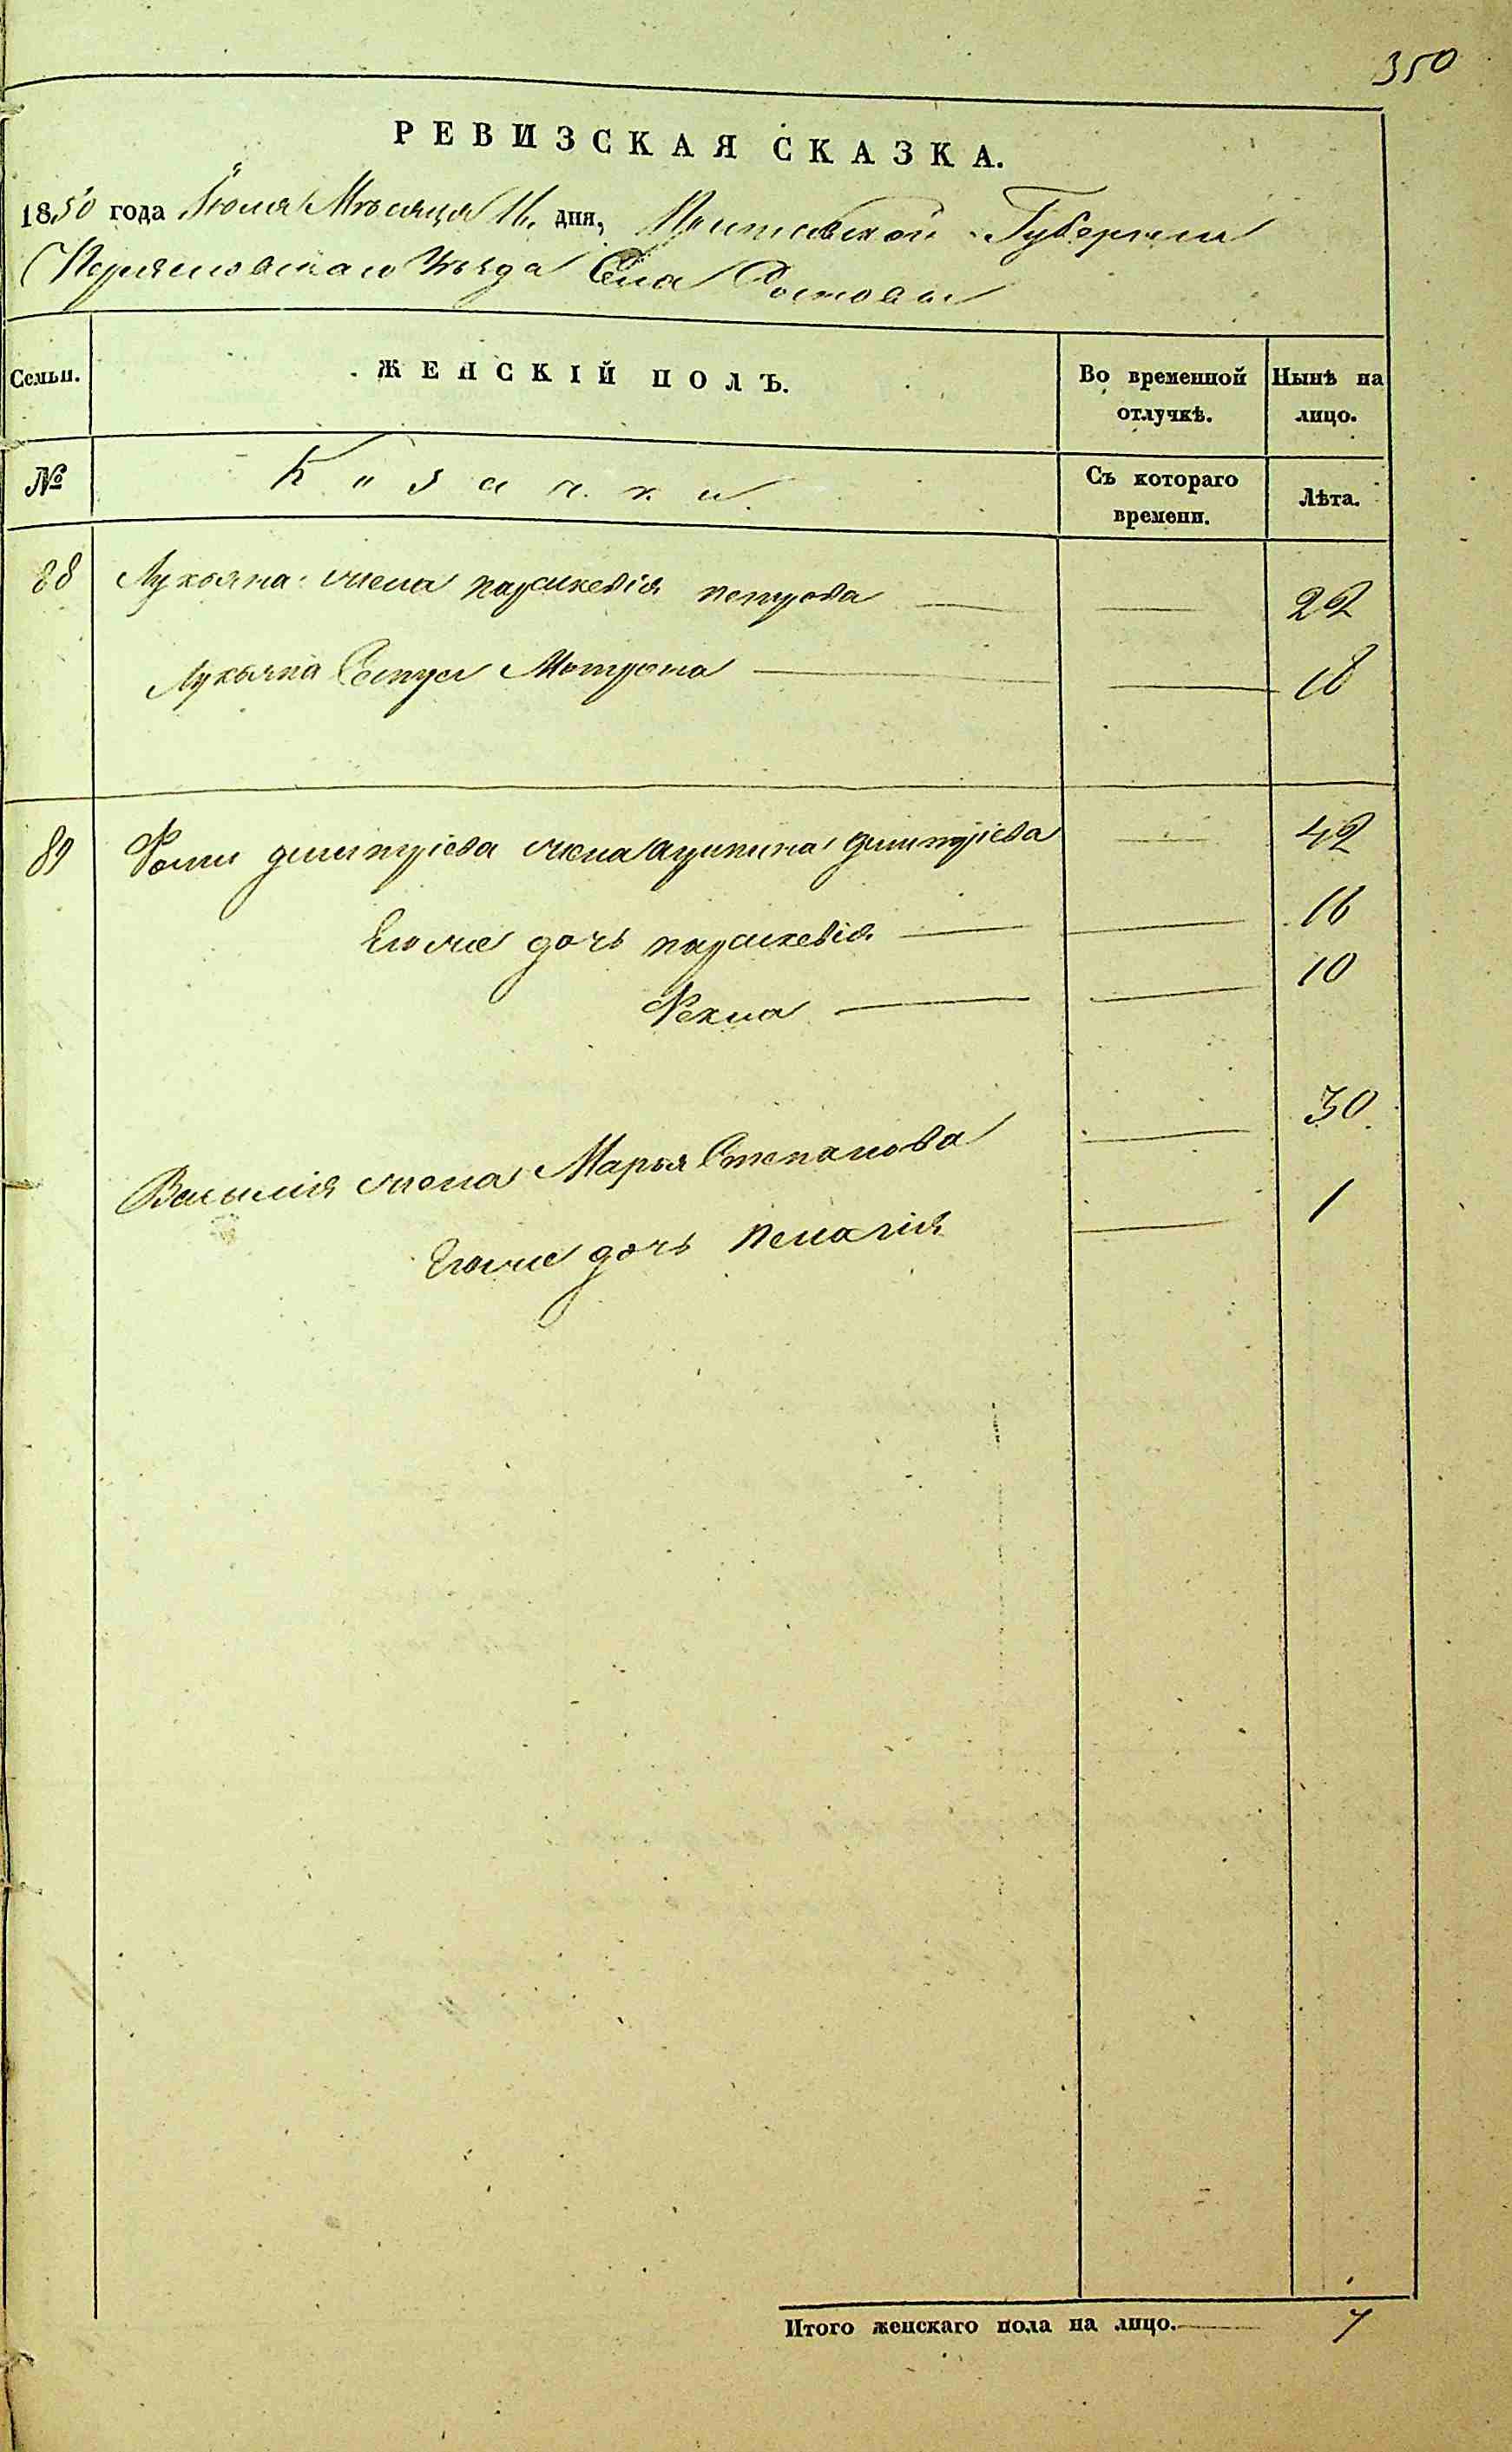 350
РЕВИЗСКАЯ СКАЗКА.
1850 года Іюля Мѣсяца 16 дня, Полтавской Губерніи
Переясловскаго Уѣзда Села Ростовы
Семьи.
ЖЕНСКІЙ ПОЛЪ.
Во временной отлучкѣ.
Нынѣ на лицо.
№
Козачки
Съ котораго времени.
Лѣта.
88 Лукьяна жена параскевія петрова — — 22
Лукьяна Сестра Мотрона — — 18
89 Фомы димитріева жена агрипина димитріева — 42
Егоже дочь параскевія — — 16
Фекла — — 10
Василія жена Марья Степанова — 30
Егоже дочь пелагія — 1
Итого женскаго пола на лицо. — 7